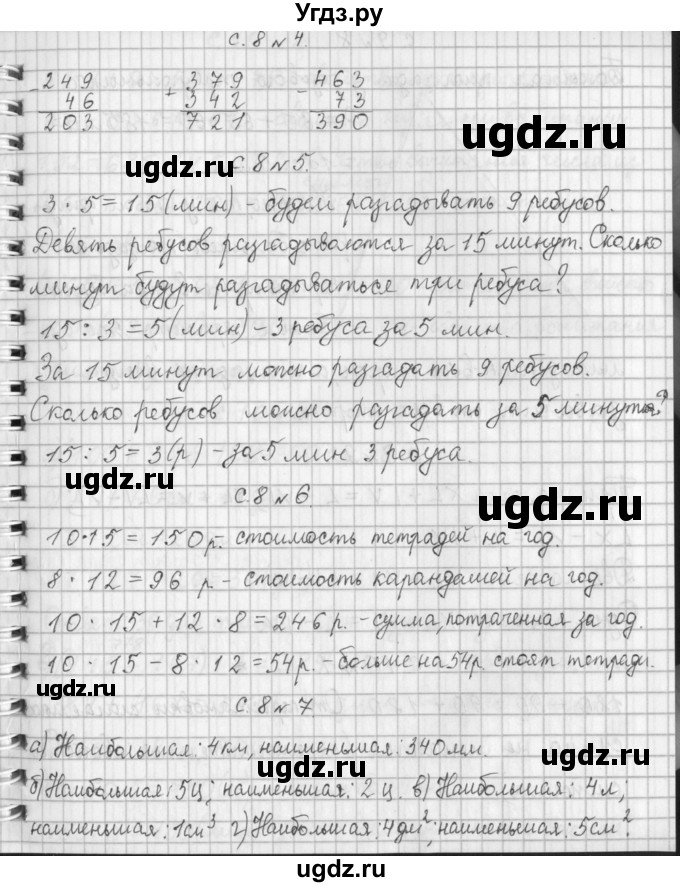 Угдз.ру
с. 8 № 4.
- 249 + 379 - 463
46 342 73
203 721 390
ugdz.ru
ugdz.ru
с. 8 № 5.
3 · 5 = 15 (мин) - будем разгадывать 9 ребусов.
Девять ребусов разгадываются за 15 минут. Сколько
минут будут разгадываться три ребуса?
15 : 3 = 5 (мин) - 3 ребуса за 5 мин.
ugdz.ru
За 15 минут можно разгадать 9 ребусов.
Сколько ребусов можно разгадать за 5 минут?
15 : 5 = 3 (р) - за 5 мин 3 ребуса.
ugdz.ru
с. 8 № 6.
ugdz.ru
10 · 15 = 150 р. - стоимость тетрадей на год.
8 · 12 = 96 р - стоимость карандашей на год.
10 · 15 + 12 · 8 = 246 р. - сумма, потраченная за год.
10 · 15 - 8 · 12 = 54 р. - больше на 54 р. стоят тетради.
ugdz.ru
с. 8 № 7
а) Наибольшая: 4 км, наименьшая: 340 мм.
ugdz.ru
б) Наибольшая: 5 ц; наименьшая: 2 ц. в) Наибольшая: 4 л;
наименьшая: 1 см³ г) Наибольшая: 4 дм²; наименьшая: 5 см².
ugdz.ru